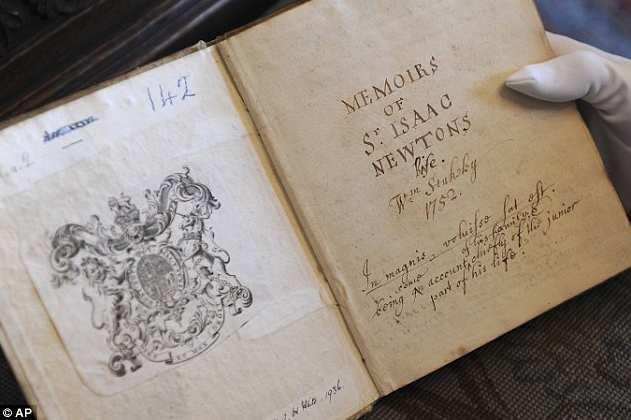 142
MEMOIRS
OF
Sr. ISAAC
NEWTONS
life.
Wm Stukeley
1752.
In magnis voluisse sat est.
being some account of his family
chiefly of the junior
part of his life.
1936
© AP